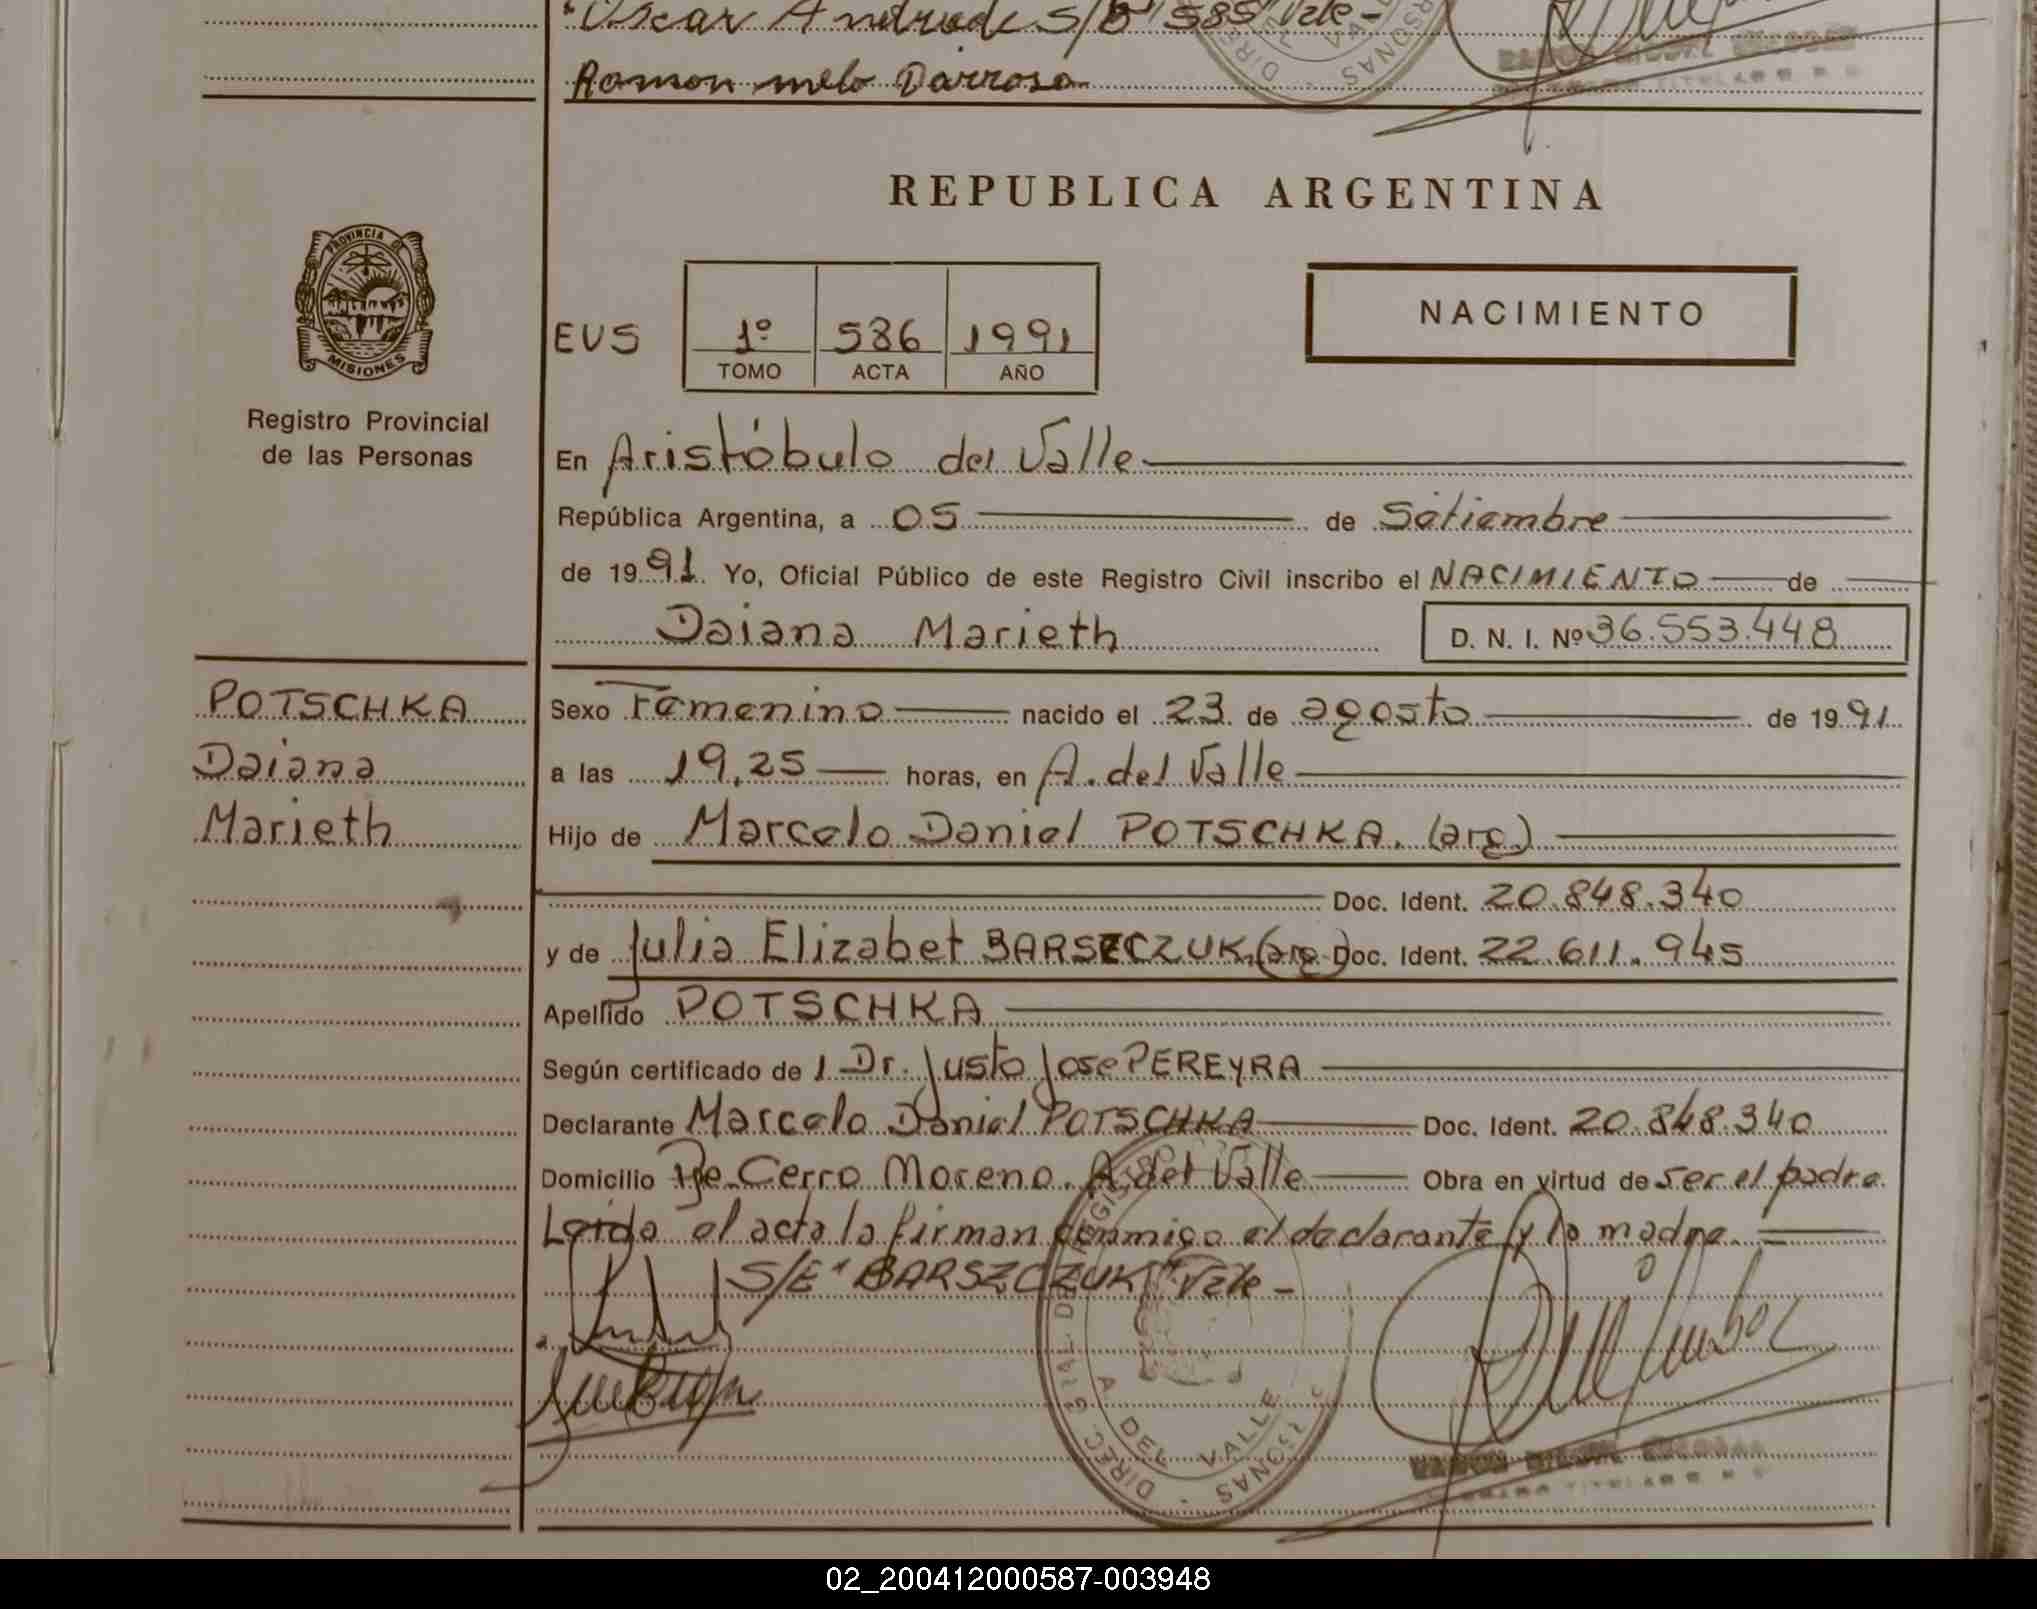 "Oscar Andrade S/B "585" Vale-
Ramon melo Darrosa
PROVINCIA DE
MISIONES
Registro Provincial
de las Personas
REPUBLICA ARGENTINA
EVS 1º 586 1991
TOMO ACTA AÑO
NACIMIENTO
En Aristóbulo del Valle
República Argentina, a 05 de Setiembre
de 1991 Yo, Oficial Público de este Registro Civil inscribo el NACIMIENTO de
Daiana Marieth D. N. I. Nº 36.553.448
POTSCHKA
Daiana
Marieth
Sexo Femenino nacido el 23 de agosto de 1991
a las 19,25 horas, en A. del Valle
Hijo de Marcelo Daniel POTSCHKA. (arg.)
Doc. Ident. 20.848.340
y de Julia Elizabet BARSZCZUK. (arg.) Doc. Ident. 22.611.945
Apellido POTSCHKA
Según certificado de 1 Dr. Justo Jose PEREYRA
Declarante Marcelo Daniel POTSCHKA Doc. Ident. 20.848.340
Domicilio Pje. Cerro Moreno. A. del Valle Obra en virtud de ser el padre
Leida el acta la firman conmigo el declarante y la madre.
S/E "BARSZCZUK" Vale-
A. DEL VALLE
02_200412000587-003948